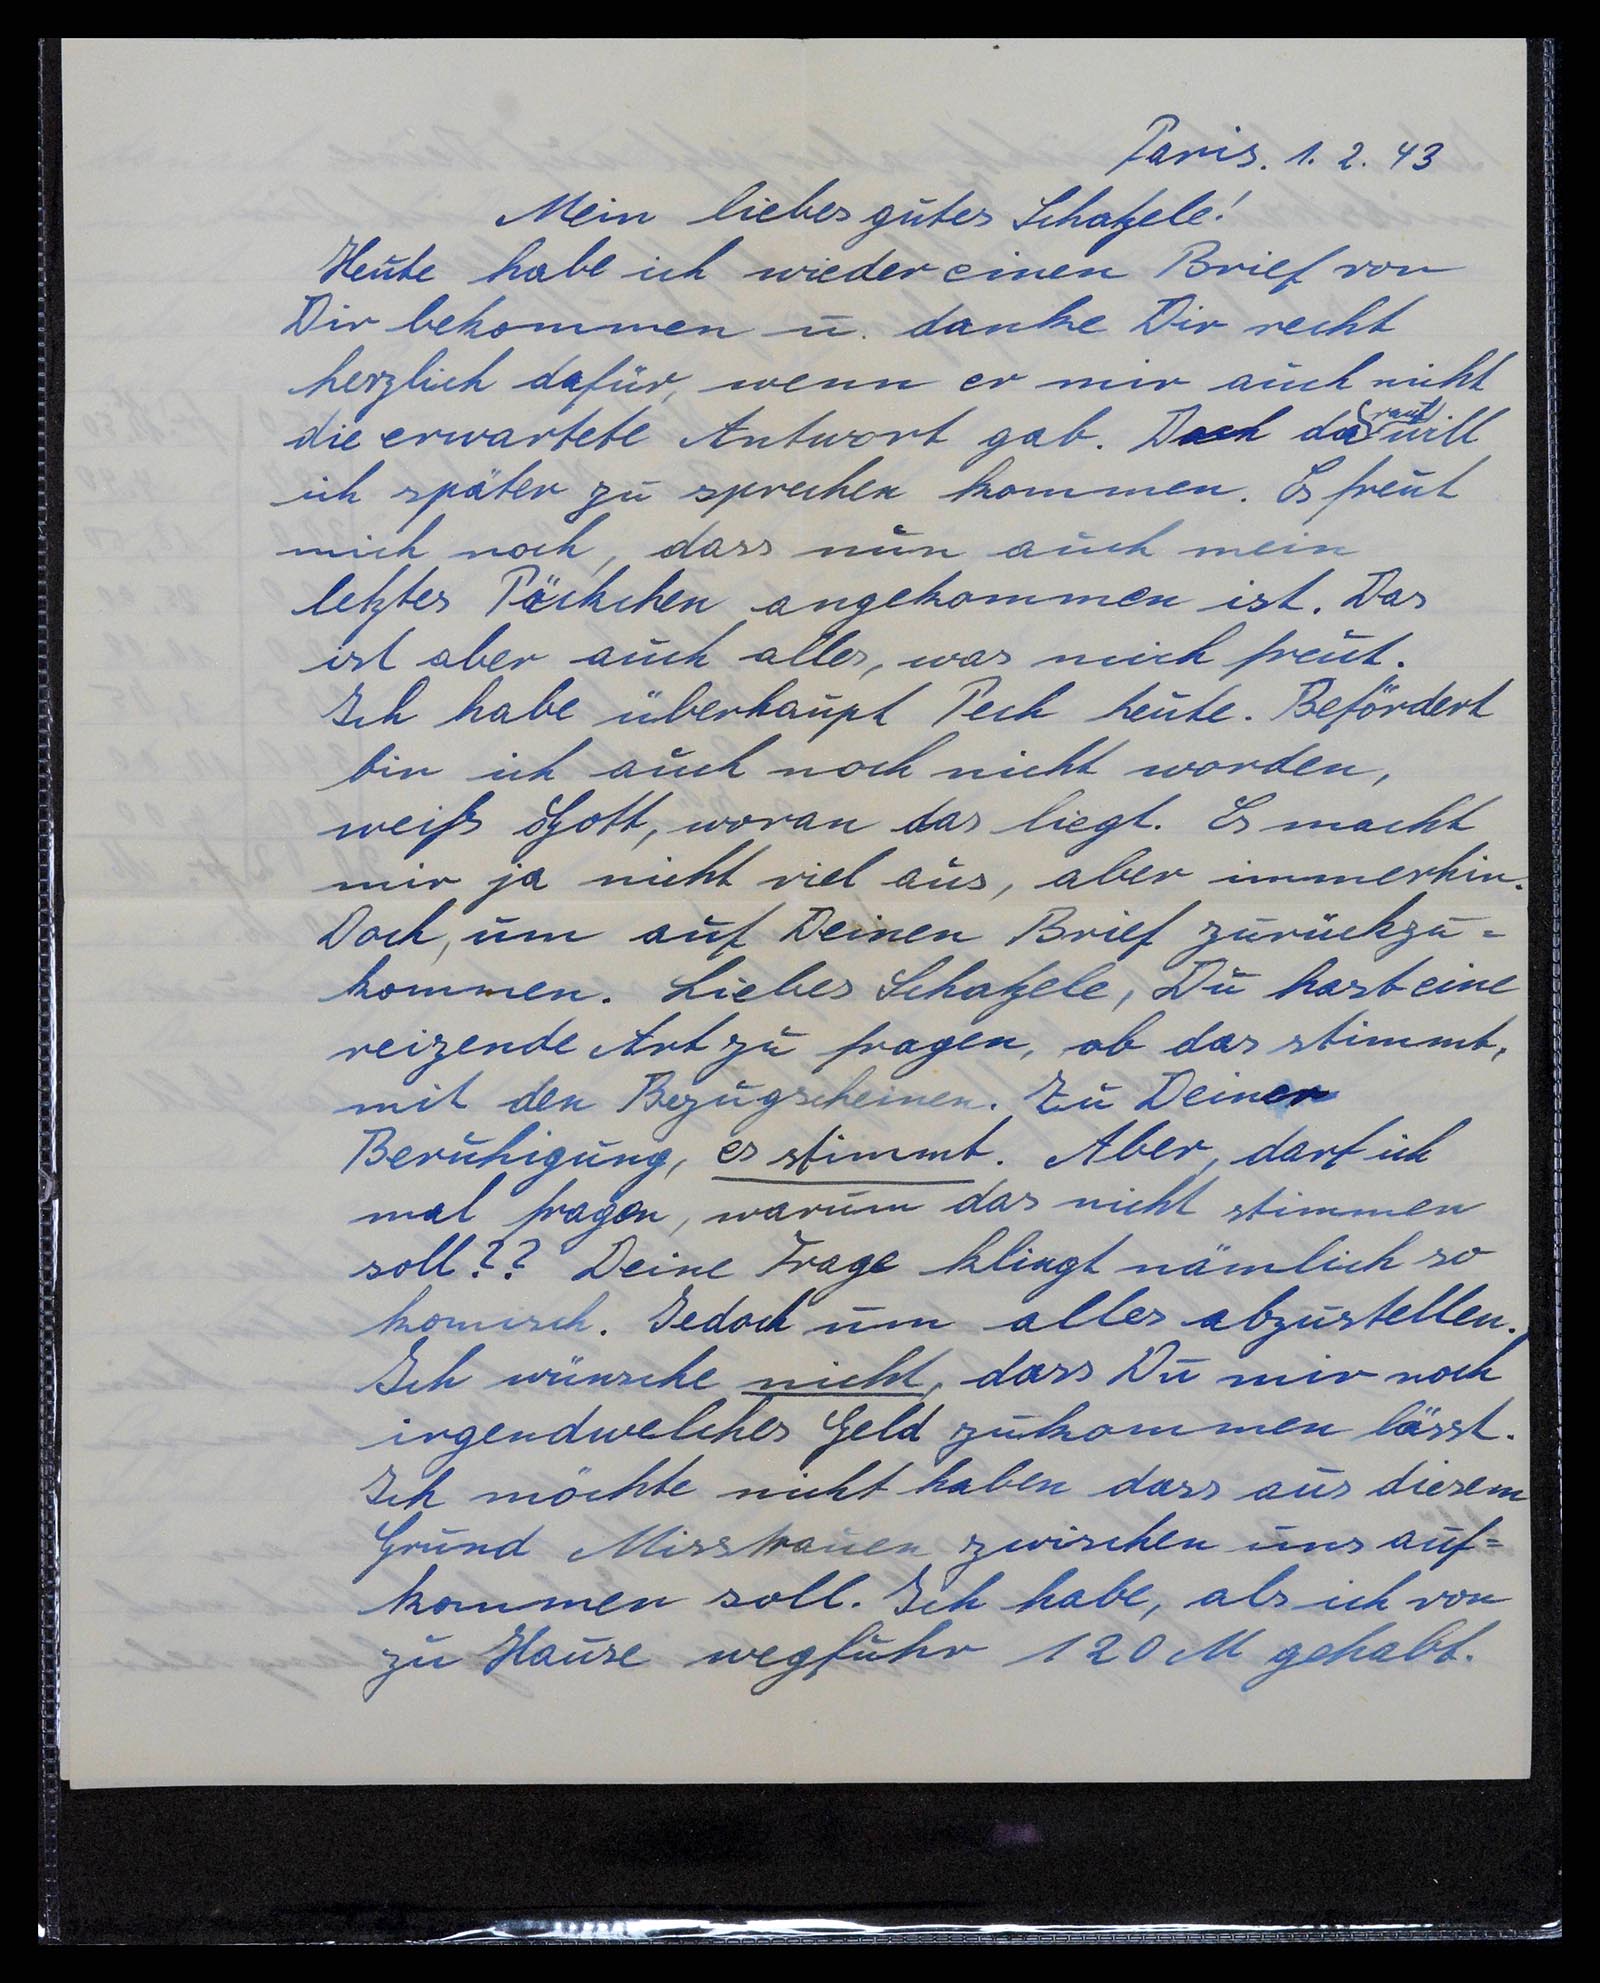 Paris. 1. 2. 43
Mein liebes gutes Schatzele!
Heute habe ich wieder einen Brief von
Dir bekommen u. danke Dir recht
herzlich dafür, wenn er mir auch nicht
die erwartete Antwort gab. Doch darauf will
ich später zu sprechen kommen. Es freut
mich noch, dass nun auch mein
letztes Päckchen angekommen ist. Das
ist aber auch alles, was mich freut.
Ich habe überhaupt Pech heute. Befördert
bin ich auch noch nicht worden,
weiß Gott, woran das liegt. Es macht
mir ja nicht viel aus, aber immerhin.
Doch, um auf Deinen Brief zurückzu=
kommen. Liebes Schatzele, Du hast eine
reizende Art zu fragen, ob das stimmt,
mit den Bezugscheinen. Zu Deiner
Beruhigung, es stimmt. Aber, darf ich
mal fragen, warum das nicht stimmen
soll?? Deine Frage klingt nämlich so
komisch. Jedoch um alles abzustellen.
Ich wünsche nicht, dass Du mir noch
irgendwelches Geld zukommen lässt.
Ich möchte nicht haben dass aus diesem
Grund Misstrauen zwischen uns auf=
kommen soll. Ich habe, als ich von
zu Hause wegfuhr 120 M gehabt.